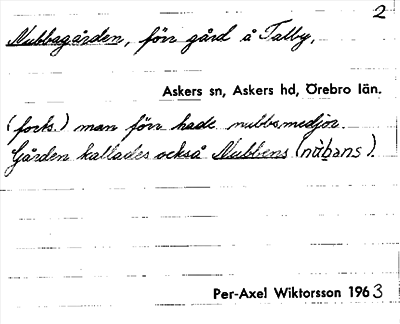 2
Nubbagården, förr gård å Talby,
Askers sn, Askers hd, Örebro län.
(forts.) man förr hade nubbsmedjor.
Gården kallades också Nubbens (nùbans).
Per-Axel Wiktorsson 1963